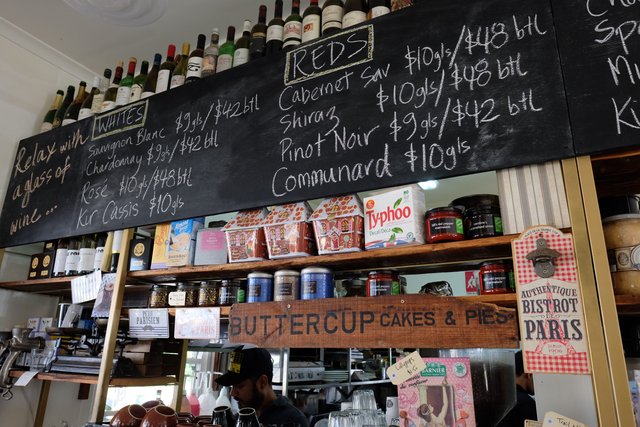 Relax with
a glass of
wine...
WHITES
Sauvignon Blanc $9gls/$42 btl
Chardonnay $9gls/$42 btl
Rosé $10gls/$48 btl
Kir Cassis $10gls
REDS
Cabernet Sav $10gls/$48 btl
Shiraz $10gls/$48 btl
Pinot Noir $9gls/$42 btl
Communard $10gls
Typhoo
BUTTERCUP CAKES & PIES
AUTHENTIQUE
BISTROT
de
PARIS
PETIT
PARISIEN
GARNIER